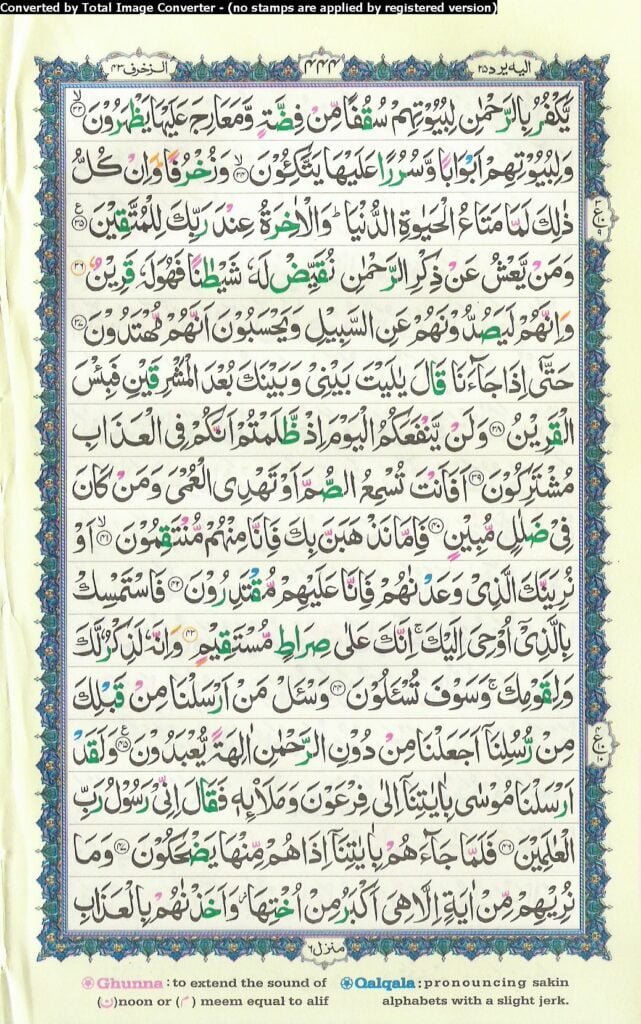 Converted by Total Image Converter - (no stamps are applied by registered version)
الیه یرد ۲۵
۴۴۴
الزخرف ۴۳
يَّكْفُرُ بِالرَّحْمٰنِ لِبُيُوْتِهِمْ سُقُفًا مِّنْ فِضَّةٍ وَّمَعَارِجَ عَلَيْهَا يَظْهَرُوْنَ ۙ‏﴿۳۳﴾
وَلِبُيُوْتِهِمْ اَبْوَابًا وَّسُرُرًا عَلَيْهَا يَتَّكِـُٔوْنَ ۙ‏﴿۳۴﴾ وَزُخْرُفًا ؕ وَاِنْ كُلُّ
ذٰلِكَ لَمَّا مَتَاعُ الْحَيٰوةِ الدُّنْيَا ؕ وَالْاٰخِرَةُ عِنْدَ رَبِّكَ لِلْمُتَّقِيْنَ ﴿۳۵﴾ ع
وَمَنْ يَّعْشُ عَنْ ذِكْرِ الرَّحْمٰنِ نُقَيِّضْ لَهٗ شَيْطٰنًا فَهُوَ لَهٗ قَرِيْنٌ ﴿۳۶﴾
وَاِنَّهُمْ لَيَصُدُّوْنَهُمْ عَنِ السَّبِيْلِ وَيَحْسَبُوْنَ اَنَّهُمْ مُّهْتَدُوْنَ ﴿۳۷﴾
حَتّٰۤى اِذَا جَآءَنَا قَالَ يٰلَيْتَ بَيْنِيْ وَبَيْنَكَ بُعْدَ الْمَشْرِقَيْنِ فَبِئْسَ
الْقَرِيْنُ ﴿۳۸﴾ وَلَنْ يَّنْفَعَكُمُ الْيَوْمَ اِذْ ظَّلَمْتُمْ اَنَّكُمْ فِى الْعَذَابِ
مُشْتَرِكُوْنَ ﴿۳۹﴾ اَفَاَنْتَ تُسْمِعُ الصُّمَّ اَوْ تَهْدِى الْعُمْىَ وَمَنْ كَانَ
فِىْ ضَلٰلٍ مُّبِيْنٍ ﴿۴۰﴾ فَاِمَّا نَذْهَبَنَّ بِكَ فَاِنَّا مِنْهُمْ مُّنْتَقِمُوْنَ ۙ‏﴿۴۱﴾ اَوْ
نُرِيَنَّكَ الَّذِىْ وَعَدْنٰهُمْ فَاِنَّا عَلَيْهِمْ مُّقْتَدِرُوْنَ ﴿۴۲﴾ فَاسْتَمْسِكْ
بِالَّذِىْۤ اُوْحِىَ اِلَيْكَ ۚ اِنَّكَ عَلٰى صِرَاطٍ مُّسْتَقِيْمٍ ﴿۴۳﴾ وَاِنَّهٗ لَذِكْرٌ لَّكَ
وَلِقَوْمِكَ ۚ وَسَوْفَ تُسْـَٔلُوْنَ ﴿۴۴﴾ وَسْـَٔلْ مَنْ اَرْسَلْنَا مِنْ قَبْلِكَ
مِنْ رُّسُلِنَاۤ اَجَعَلْنَا مِنْ دُوْنِ الرَّحْمٰنِ اٰلِهَةً يُّعْبَدُوْنَ ﴿۴۵﴾ ع وَلَقَدْ
اَرْسَلْنَا مُوْسٰى بِاٰيٰتِنَاۤ اِلٰى فِرْعَوْنَ وَمَلَا۟ئِهٖ فَقَالَ اِنِّىْ رَسُوْلُ رَبِّ
الْعٰلَمِيْنَ ﴿۴۶﴾ فَلَمَّا جَآءَهُمْ بِاٰيٰتِنَاۤ اِذَا هُمْ مِّنْهَا يَضْحَكُوْنَ ﴿۴۷﴾ وَمَا
نُرِيْهِمْ مِّنْ اٰيَةٍ اِلَّا هِىَ اَكْبَرُ مِنْ اُخْتِهَا ؗ وَاَخَذْنٰهُمْ بِالْعَذَابِ
منزل ۶
Ghunna : to extend the sound of
(ن) noon or (م) meem equal to alif
Qalqala : pronouncing sakin
alphabets with a slight jerk.